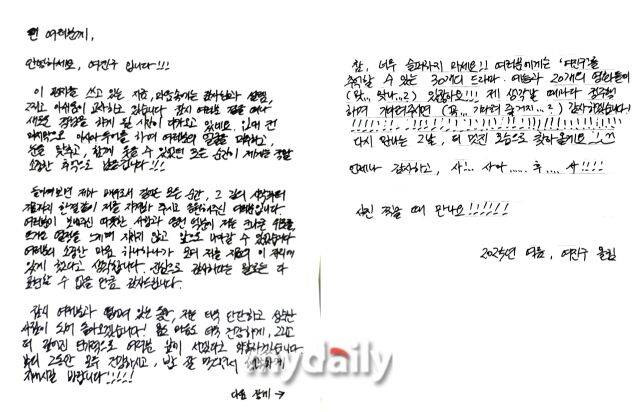 팬 여러분께,
안녕하세요, 여진구 입니다!!!
이 편지를 쓰고 있는 지금, 마음속에는 감사함과 설렘,
그리고 아쉬움이 교차하고 있습니다. 잠시 여러분 곁을 떠나
새로운 경험을 하게 될 시간이 다가오고 있네요. 입대 전
마지막으로 아시아 투어를 하며 여러분의 얼굴을 마주하고,
눈을 맞추고, 함께 웃을 수 있었던 모든 순간이 제게는 정말
소중한 추억으로 남았습니다!!!
돌이켜보면 제가 배우로서 걸어온 모든 순간, 그 길의 시작부터
지금까지 한결같이 저를 지켜봐 주시고 응원해주신 여러분입니다.
여러분이 보내주신 따뜻한 사랑과
앞으로 나아갈 수 있었습니다
여러분의 소중한 마음 하나하나가 모여 저를 지금의 이 자리에
있게 했다고 생각합니다. 진심으로 감사하다는 말로는 다
표현할 수 없을 만큼 감사드립니다.
잠시 여러분과 떨어져 있는 동안, 저는 더욱 단단하고 성숙한
사람이 되어 돌아오겠습니다! 몸도 마음도 더욱 건강하게, 그리고
더 깊어진 연기력으로 여러분 앞에 서겠다고 약속드립니다
부디 그동안 모두 건강하시고, 밥 잘 챙겨먹고 행복하게
지내시길 바랍니다!!!!!
다음 장에 →
참, 너무 슬퍼하지 마세요!! 여러분에게는 '여진구'를
추억할 수 있는 30개의 드라마, 예능과 20개의 영화들이
(맞... 맞나...?) 있잖아요!!! 제 생각날 때마다 정주행
하며 기다려주시면 (꼭... 기다려 줄거지...?) 감사하겠습니다!
!!!!!!!!!!!!!!!!!!!!!!!!!!!!!!!!!!!!!!!!
다시 만나는 그날, 더 멋진 모습으로 찾아올게요!^^
언제나 감사하고, 사!... 사아.....후.... 사!!!!
사진 찍을 때 만나요!!!!!!
2025년 여름, 여진구 올림
mydaily